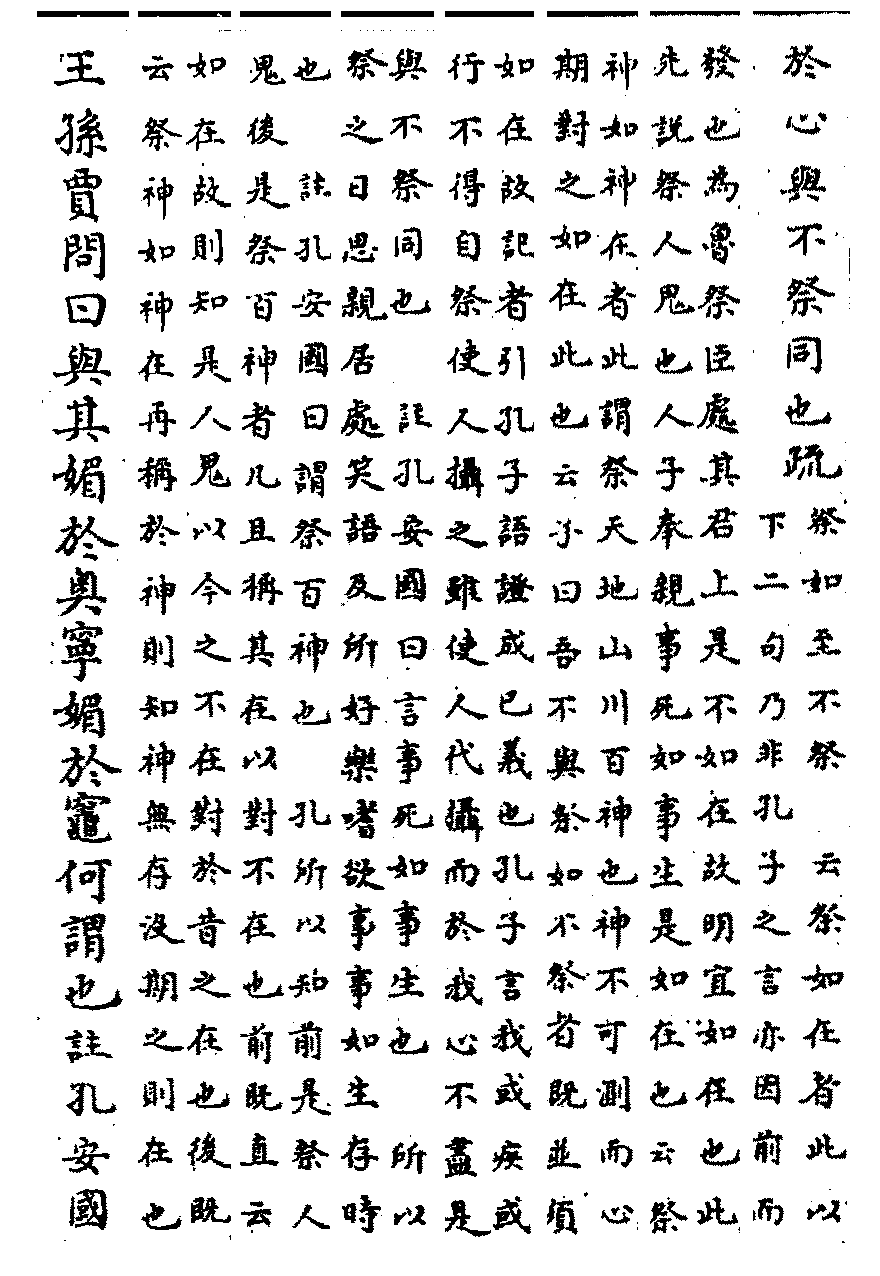 於心與不祭同也疏
祭如至不祭 云祭如在者此以
下二句乃非孔子之言亦因前而
發也為魯祭臣處其君上是不如在故明宜如在也此
先說祭人鬼也人子奉親事死如事生是如在也云祭
神如神在者此謂祭天地山川百神也神不可測而心
期對之如在此也云子曰吾不與祭如不祭者既並須
如在故記者引孔子語證成已義也孔子言我或疾或
行不得自祭使人攝之雖使人代攝而於我心不盡是
與不祭同也 註孔安國曰言事死如事生也 所以
祭之日思親居處笑語及所好樂嗜欲事事如生存時
也 註孔安國曰謂祭百神也 孔所以知前是祭人
鬼後是祭百神者凡且稱其在以對不在也前既直云
如在故則知是人鬼以今之不在對於昔之在也後既
云祭神如神在再稱於神則知神無存沒期之則在也
王孫賈問曰與其媚於奧寧媚於竈何謂也註孔安國